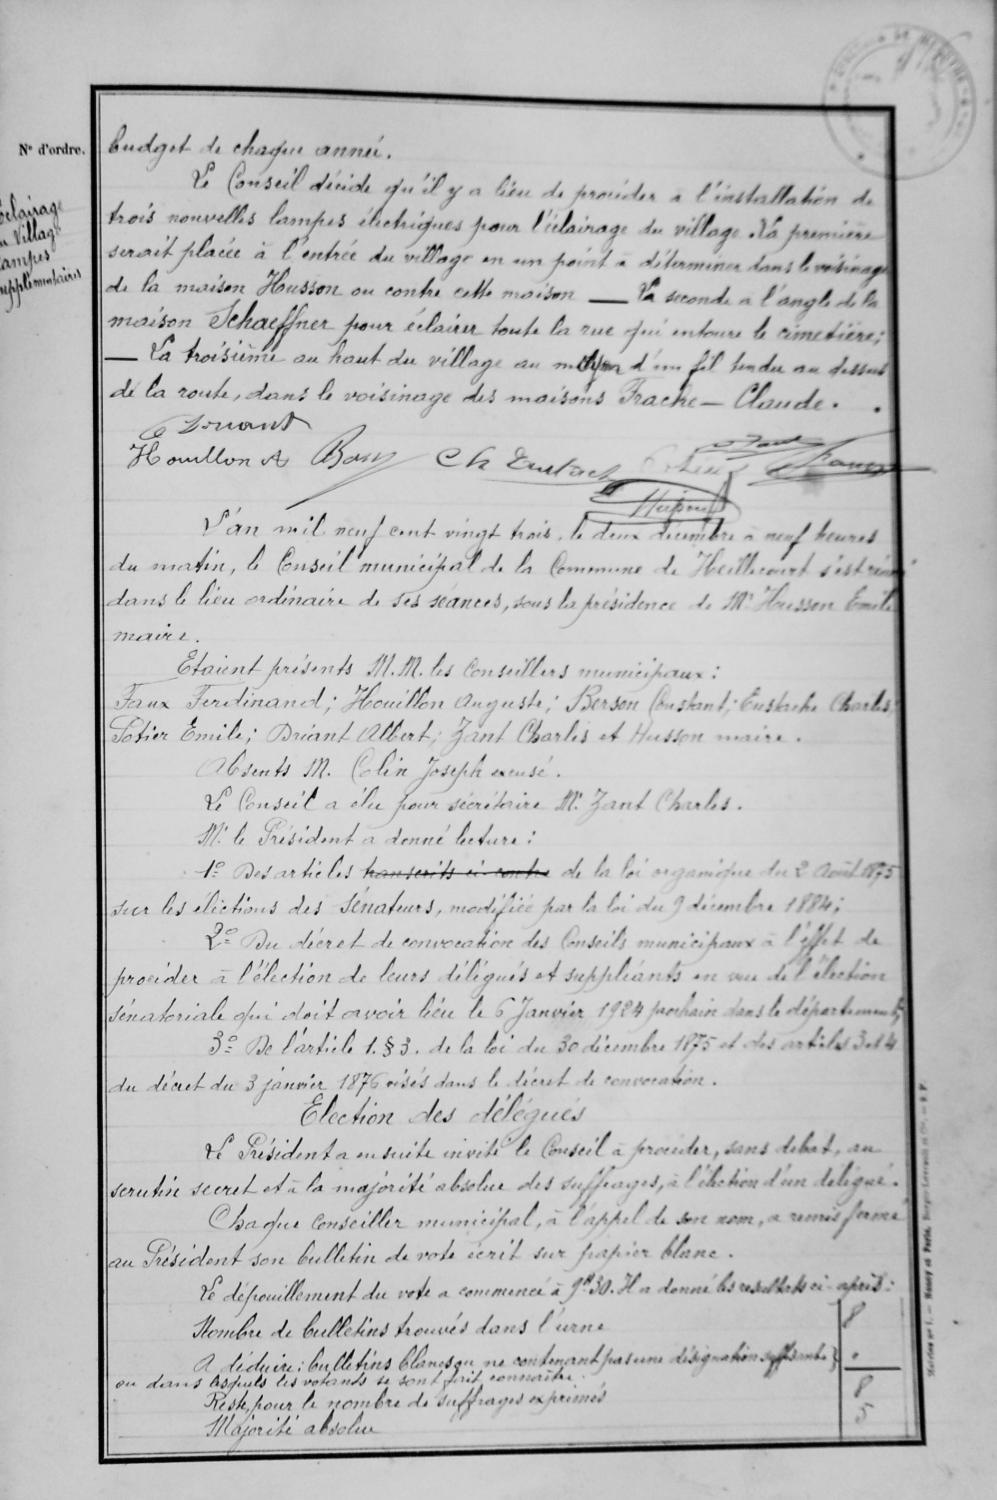 N° d'ordre.
Eclairage
du Village
Lampes
supplémentaires
budget de chaque année.
Le Conseil décide qu'il y a lieu de procéder à l'installation de
trois nouvelles lampes électriques pour l'éclairage du village. La première
serait placée à l'entrée du village en un point à déterminer dans le voisinage
de la maison Husson ou contre cette maison — La seconde à l'angle de la
maison Schaeffner pour éclairer toute la rue qui entoure le cimetière;
— La troisième au haut du village au moyen d'un fil tendu au dessus
de la route, dans le voisinage des maisons Frache - Claude.
Houillon A Ch Eustache
L'an mil neuf cent vingt trois, le deux décembre à neuf heures
du matin, le Conseil municipal de la Commune de Heillecourt s'est réuni
dans le lieu ordinaire de ses séances, sous la présidence de Mr Husson Emile
maire.
Etaient présents M.M. les Conseillers municipaux:
Faux Ferdinand; Houillon Auguste; Berson Constant; Eustache Charles;
Potier Emile; Briant Albert; Zant Charles et Husson maire.
Absents M. Colin Joseph excusé.
Le Conseil a élu pour secrétaire Mr. Zant Charles.
Mr. le Président a donné lecture:
1° Des articles transcrits ci-contre de la loi organique du 2 Août 1875
sur les élections des Sénateurs, modifiée par la loi du 9 décembre 1884;
2° Du décret de convocation des Conseils municipaux à l'effet de
procéder à l'élection de leurs délégués et suppléants en vue de l'élection
sénatoriale qui doit avoir lieu le 6 Janvier 1924 prochain dans le département;
3° De l'article 1. § 3. de la loi du 30 décembre 1875 et des articles 3 et 4
du décret du 3 janvier 1876 visés dans le décret de convocation.
Election des délégués
Le Président a ensuite invité le Conseil à procéder, sans débat, au
scrutin secret et à la majorité absolue des suffrages, à l'élection d'un délégué.
Chaque Conseiller municipal, à l'appel de son nom, a remis fermé
au Président son bulletin de vote écrit sur papier blanc.
Le dépouillement du vote a commencé à 9h30. Il a donné les résultats ci-après:
Nombre de bulletins trouvés dans l'urne 8
A déduire: bulletins blancs ou ne contenant pas une désignation suffisante }
ou dans lesquels les votants se sont fait connaître.
Reste, pour le nombre de suffrages exprimés 8
Majorité absolue 5